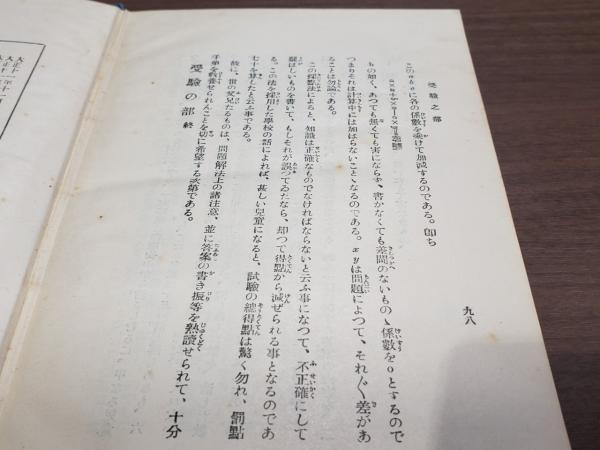 受驗之部
九八
このaとbとcに各の係數を乘けて加減するのである。卽ち
もの如く、あつても無くても害にならず、書かなくても差閊のないものゝ係數を0とするので
つまりそれは計算中には加はらないことゝなるのである。xyは問題によつて、それ〲差があ
ることは勿論である。
この採點法によると、知識は正確なものでなければならないと云ふ事になつて、不正確にして
疑はしいものを書いて、もしそれが誤つてゐたなら、却つて得點から減ぜられる事となるのであ
る。この法を採用した學校の話によれば、甚しい兒童になると、試驗の總得點は驚く勿れ、罰點
七十を算したと云ふ事である。
故に、世の父兄たるものは、問題解法上の諸注意、並に答案の書き振等を熟讀せられて、十分
子弟を教養せられんことを切に希望する次第である。
受驗の部 終